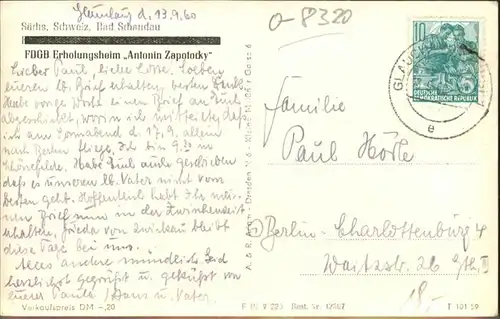 Glauchau d. 13.9.60
Sächs. Schweiz, Bad Schandau
FDGB Erholungsheim „Antonin Zapotocky"
Lieber Paul, liebe Soeben
eueren lb. Brief erhalten, besten Dank
Habe vorige Woche einen Brief an Euch
abgeschickt, worin ich mitteilte, daß
ich am Sonnabend d. 17.9. allein
nach Berlin fliege. Ich bin 9.30 in
Schönefelde. Habe Euch auch geschrieben
daß es unserem lb. Vater nicht vom
besten geht. Hoffentlich habt Ihr mei-
nen Brief nun in der Zwischenzeit
erhalten. Frieda von Zwickau bleibt
diese Tage bei uns.
Alles andere mündlich. Seid
herzlichst gegrüßt u. geküßt von
eurer Paula, Hans u. Vater.
Verkaufspreis DM -,20
A. & R. Adam, Dresden
o-8320
10
DEUTSCHE
DEMOKRATISCHE REPUBLIK
GLAUCHAU
e
Familie
Paul Hörle
Berlin-Charlottenburg 4
Waitzstr. 26
18,-
Best. Nr.